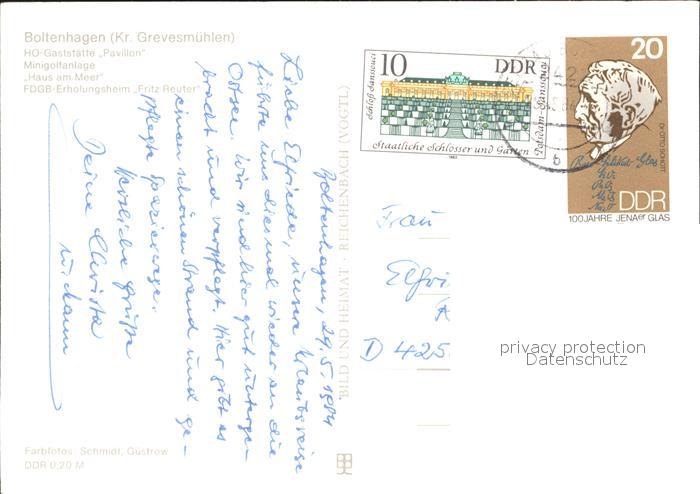 Boltenhagen (Kr. Grevesmühlen)
HO-Gaststätte „Pavillon"
Minigolfanlage
„Haus am Meer"
FDGB-Erholungsheim „Fritz Reuter"
Boltenhagen, 29.5.1984
Liebe Elfriede, unsere Urlaubsreise
führte uns diesmal wieder an die
Ostsee. Wir sind hier gut unterge-
bracht und verpflegt. Hier gibt es
einen schönen Strand und ge-
pflegte Spazierwege.
Herzliche Grüße
Deine Christa
u.
Farbfotos: Schmidt, Güstrow
DDR 0,20 M
BILD UND HEIMAT · REICHENBACH (VOGTL)
10 DDR
Schloß Sanssouci
Potsdam-Sanssouci
Staatliche Schlösser und Gärten
1983
b
20
Dr. OTTO SCHOTT
Glas
DDR
100 JAHRE JENAer GLAS
Frau
Elfri
D 425
privacy protection
Datenschutz